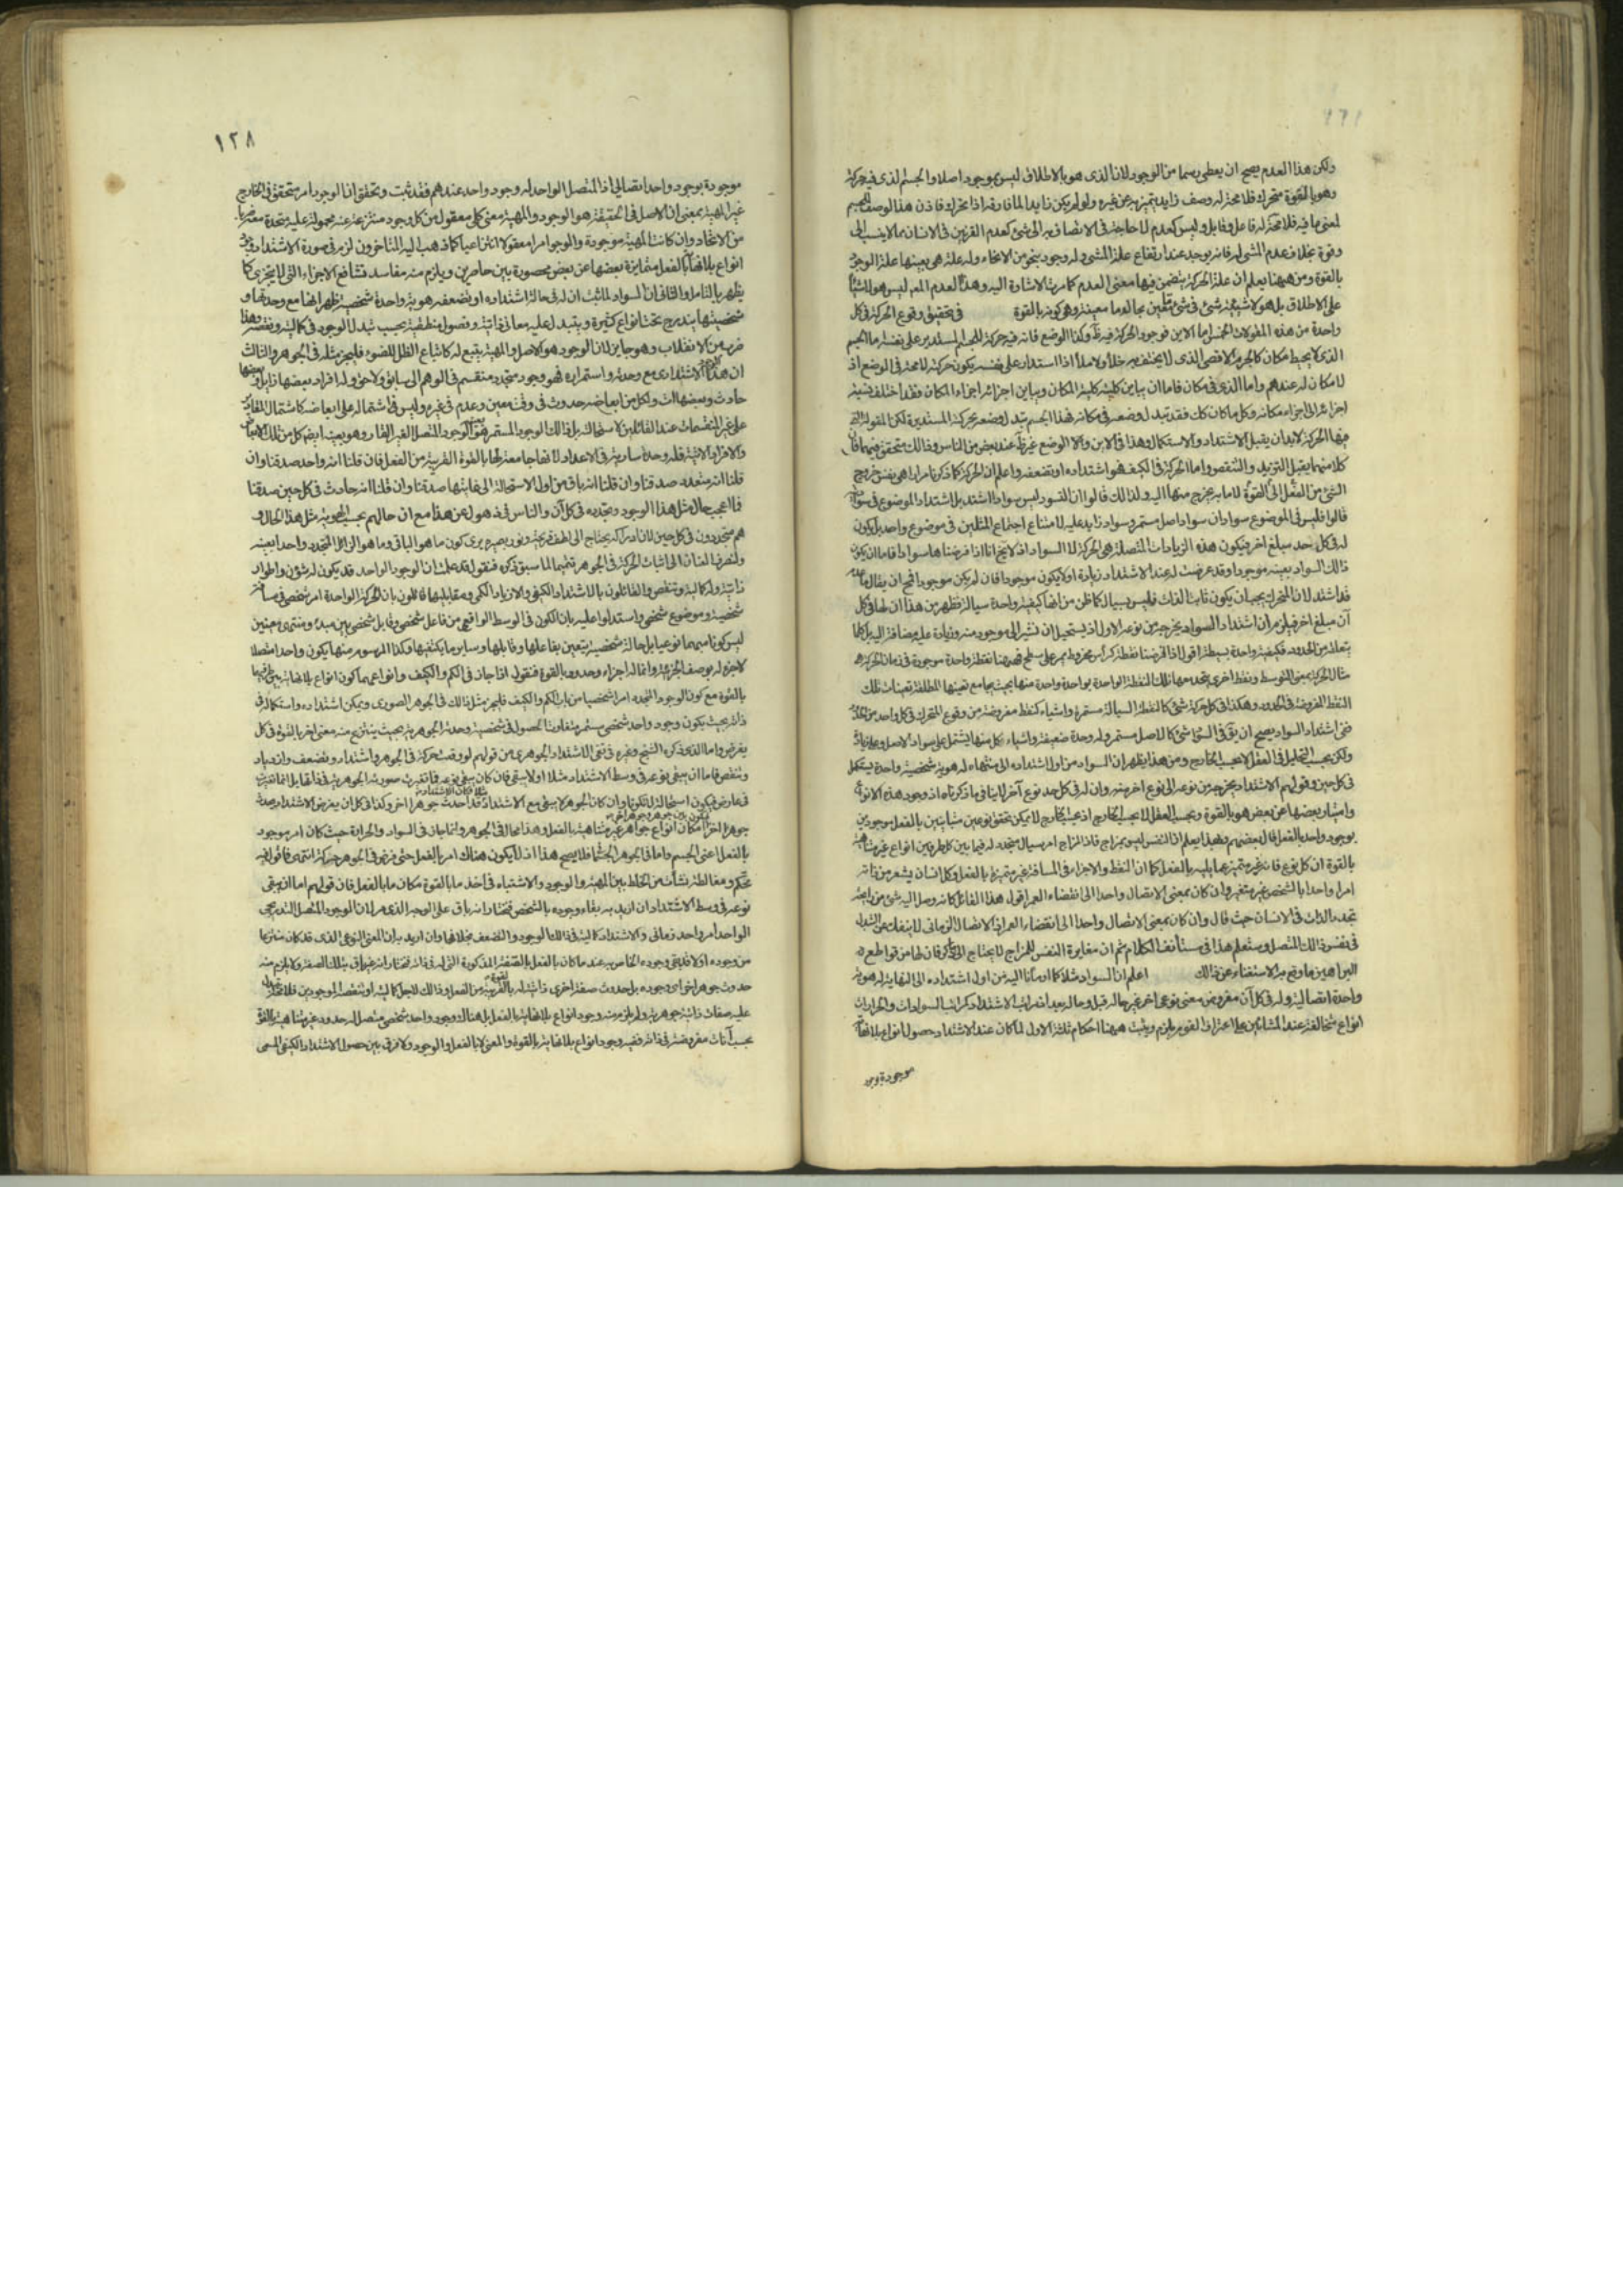 ولكن هذا العدم يصح ان يعطى رسما من الوجود لان الذى هو بالاطلاق ليس بموجود اصلا والجسم الذى فيه حركة
وهو بالقوة متحرك فلا محة له وصف زايد يتميز به عن غيره ولو لم يكن زايدا لما فارقه اذا تحرك فاذن هذا الوصف للجسم
لمعنى ما فيه فلا محة له فاعل وقابل وليس كعدم لا حاجة فى الاتصاف به الى شئ كعدم القرنين فى الانسان مما لا ينسب الى
وقوة بخلاف عدم المشى له فانه يوجد عند ارتفاع علة المشى وله وجود بنحو من الانحاء وله علة هى بعينها علة الوجود
بالقوة ومن ههنا يعلم ان علة الحركة يتضمن فيها معنى العدم كما مرت الاشارة اليه وهذا العدم المعه ليس هو لا شيئا
على الاطلاق بل هو لا شيئية شئ فى شئ معين بحالة ما معينة وهى كونه بالقوة فى تحقيق وقوع الحركة فى كل
واحدة من هذه المقولات الخمس اما الاين فوجود الحركة فيه ظ وكذا الوضع فانه فيه حركة كالجسم المستدير على نفسه اما الجسم
الذى لا يحيط به مكان كالجرم الاقصى الذى لا يكتنف به خلا ولا ملا اذا استدار على نفسه يكون حركته لا محة فى الوضع اذ
لا مكان له عندهم واما الذى فى مكان فاما ان يباين كليته كلية المكان ويباين اجزائه اجزاء المكان فقد اختلف نسبة
اجزائه الى اجزاء مكانه وكل ما كان كك فقد تبدل وضعه فى مكانه فهذا الجسم تبدل وضعه بحركته المستديرة لكن المقولة التى
فيها الحركة لابد ان يقبل الاشتداد والاستكمال وهذا فى الاين والا الوضع غير ظ عند بعض من الناس وذالك متحقق فيهما فان
كلا منهما يقبل التزيد والتنقص واما الحركة فى الكيف فهو اشتداده او تضعفه واعلم ان الحركة كما ذكرنا مرارا هى نفس خروج
الشئ من الفعل الى القوة لا ما به يخرج منها اليه ولذالك قالوا ان التسود ليس سوادا اشتد بل اشتداد الموضوع فى سواديته
قالوا فليس فى الموضوع سوادان سواد اصل مستمر وسواد زايد عليه لامتناع اجتماع المثلين فى موضوع واحد بل يكون
له فى كل حد مبلغ اخر فيكون هذه الزيادات المتصلة هى الحركة لا السواد اذ لا يخ انا اذا فرضناها سوادا فاما ان يكون
ذالك السواد بعينه موجودا وقد عرضت له عند الاشتداد زيادة اولا يكون موجودا فان لم يكن موجودا فمح ان يقال ما عدم
قد اشتد لان المتحرك يجب ان يكون ثابت الذات فليس بسيال كما ظن من انها كيفية واحدة سيالة فظهر من هذا ان لها فى كل
آن مبلغ اخر فيلزم ان اشتداد السواد يخرجه من نوعه الاول اذ يستحيل ان نشير الى موجود منه وزيادة عليه مضافة اليه بل كلما
يبلغه من الحدود فكيفية واحدة بسيطة اقول اذا فرضنا نقطة كرأس مخروط يمر على سطح فههنا نقطة واحدة موجودة فى زمان الحركة هى
مثال الحركة بمعنى التوسط ونقط اخرى يتحد معها تلك النقطة الواحدة بواحدة واحدة منها بحيث يجامع تعينها المطلقة تعينات تلك
النقط المفروضة فى الحدود وهكذا فى كل حركة شئ كالنقطة السيالة مستمرة واشياء كنقط مفروضة من وقوع المتحرك فى كل واحد من الحدود
ففى اشتداد السواد يصح ان يق فى السواد شئ كالاصل مستمر وله وحدة ضعيفة واشياء كل منها يشتمل على سواد الاصل وعلى زيادة
ولكن بحسب التحليل فى العقل لا بحسب الخارج ومن هذا يظهر ان السواد من اول اشتداده الى منتهاه له هوية شخصية واحدة يستكمل
فى كل حين وقولهم الاشتداد يخرجه من نوعه الى نوع اخر منه وان له فى كل حد نوع آخر لا ينافى ما ذكرناه اذ وجود هذه الانواع
وامتياز بعضها عن بعض هو بالقوة وبحسب العقل لا بحسب الخارج اذ بحسب الخارج لا يمكن تحقق نوعين متباينين بالفعل موجودين
بوجود واحد بالفعل قال بعضهم وبهذا يعلم ان النفس ليس بمزاج فاذ المزاج امر سيال متجدد له فيما بين كل طرفين انواع غير متناهية
بالقوة ان كل نوع فانه غير متميز عما يليه بالفعل كما ان النقط والاجزاء فى المسافة غير متميزة بالفعل وكل انسان يشعر من ذاته
امرا واحدا بالشخص غير متغير وان كان بمعنى الاتصال واحدا الى انقضاء العمر اقول هذا القائل كانه وصل اليه شئ من رايحة
تجدد الذات فى الانسان حيث قال وان كان بمعنى الاتصال واحدا الى انقضاء العمر اذ الاتصال الزمانى لا ينفك عن التبدل
فى نفس ذالك المتصل وستعلم هذا فى مستأنف الكلام ثم ان مغايرة النفس للمزاج لا يحتاج الى ذكره فان لها من قواطع
البراهين ما وقع به الاستغناء عن ذالك اعلم ان السواد مثلا كما اومأنا اليه من اول اشتداده الى النهاية له هوية
واحدة اتصالية وله فى كل آن مفروض معنى نوعى اخر غير ما له قبل وما له بعد اذ مراتب الاشتداد كمراتب السوادات والحرارات
انواع متخالفة عند المشائين على اعتراف القوم يلزم ويثبت ههنا احكام ثلثة الاول لما كان عند الاشتداد حصول انواع بلانهاية
موجودة بوجود
١٢٨
موجودة بوجود واحد اتصالى اذ المتصل الواحد له وجود واحد عندهم فقد ثبت وتحقق ان الوجود امر متحقق فى الخارج
غير المهية بمعنى ان الاصل فى الحقيقة هو الوجود والمهية معنى كلى معقول من كل وجود منتزعة عنه محمولة عليه متحدة معه ضربا
من الاتحاد وان كانت المهية موجودة والوجود امرا معقولا انتزاعيا كما ذهب اليه المتاخرون لزم فى صورة الاشتداد وجود
انواع بلانهاية بالفعل متمايزة بعضها عن بعض محصورة بين حاصرين ويلزم منه مفاسد تشافع الاجزاء التى لا يتجزى كما
يظهر بالتامل والثانى ان السواد لما ثبت ان له فى حالة اشتداده او تضعفه هوية واحدة شخصية ظهر انها مع وحدتها و
شخصيتها يندرج تحت انواع كثيرة ويتبدل عليه معانى ذاتية وفصول منطقية بحسب تبدل الوجود فى كماليته ونقصه وهذا
ضرب من الانقلاب وهو جايز لان الوجود هو الاصل والمهية يتبع له كاتباع الظل للضوء فليجز مثله فى الجوهر والثالث
ان هذا الوجود الاشتدادى مع وحدته واستمراره فهو وجود متجدد منقسم فى الوهم الى سابق ولاحق وله افراد بعضها زايل وبعضها
حادث وبعضها آت ولكل من ابعاضه حدوث فى وقت معين وعدم فى غيره وليس فى اشتماله على ابعاضه كاشتمال المقادير
على غير المنقسمات عند القائلين لاستحالته بل ذالك الوجود المستمر هو بعينه الوجود المتصل الغير القار وهو بعينه ايضا كل من تلك الابعاض
والافراد الآنية فله وحدة سارية فى الاعداد لانها جامعة لها بالقوة القريبة من الفعل فان قلنا انه واحد صدقنا وان
قلنا انه متعدد صدقنا وان قلنا انه باق من اول الاستحالة الى غايتها صدقنا وان قلنا انه حادث فى كل حين صدقنا
فما اعجب حال مثل هذا الوجود وتجدده فى كل آن والناس فى ذهول عن هذا مع ان حالهم بحسب الهوية مثل هذا الحال و
هم متجددون فى كل حين لان ادراكه يحتاج الى لطف قريحة ونور بصيرة يرى كون ما هو الباقى وما هو الزائل المتجدد واحدا بعينه
ولنصرف العنان الى اثبات الحركة فى الجوهر تتميما لما سبق ذكره فنقول قد علمت ان الوجود الواحد قد يكون له شؤن واطوار
ذاتية وله كمالية وتنقص والقائلون بالاشتداد الكيفى والازدياد الكمى ومقابليهما قائلون بان الحركة الواحدة امر شخصى فى مسافة
شخصية وموضوع شخصى واستدلوا عليه بان الكون فى الوسط الواقعى من فاعل شخصى وقابل شخصى بين مبدء ومنتهى معينين
ليس كونا مبهما نوعيا بل حالة شخصية يتعين بفاعلها وقابلها وساير ما يكتنفها وكذا المرسوم منها يكون واحدا متصلا
لا جزء له بوصف الجزئية وانما له اجزاء وحدود بالقوة فنقول اذا جاز فى الكم والكيف وانواعهما كون انواع بلانهاية بين طرفيها
بالقوة مع كون الوجود المتجدد امرا شخصيا من باب الكم والكيف فليجز مثل ذالك فى الجوهر الصورى ويمكن اشتداده واستكماله فى
ذاته بحيث يكون وجود واحد شخصى مستمر متفاوت الحصول فى شخصيته ووحدته الجوهرية بحيث ينتزع منه معنى اخر بالقوة فى كل
يفرض واما الذى ذكره الشيخ وغيره فى نفى الاشتداد الجوهرى من قولهم لو وقعت حركة فى الجوهر واشتداد وتضعف وازدياد
وتنقص فاما ان يبقى نوعه فى وسط الاشتداد مثلا اولا يبقى فان كان يبقى نوعه فما تغيرت صورته الجوهرية فى ذاتها بل انما تغيرت
فى عارض فيكون استحالة لا تكونا وان كان الجوهر لا يبقى مع الاشتداد مثلا فكان الاشتداد قد احدث جوهرا اخر وكذا فى كل آن يفرض الاشتداد يحدث
جوهرا اخر فيكون بين جوهر وجوهر اخر امكان انواع جواهر غير متناهية بالفعل وهذا محال فى الجوهر وانما جاز فى السواد والحرارة حيث كان امر موجود
بالفعل اعنى الجسم واما فى الجوهر الجسمانى فلا يصح هذا اذ لا يكون هناك امر بالفعل حتى فرض فى الجوهر حركة انتهى فاقول فيه
تحكم ومغالطة نشأت من الخلط بين المهية والوجود والاشتباه فى اخذ ما بالقوة مكان ما بالفعل فان قولهم اما ان يبقى
نوعه فى وسط الاشتداد ان اريد به بقاء وجوده بالشخص فنختار انه باق على الوجه الذى مر لان الوجود المتصل التدريجى
الواحد امر واحد زمانى والاشتداد كمالية فى ذالك الوجود والتضعف بخلافها وان اريد به ان المعنى النوعى الذى قد كان منتزعا
من وجوده اولا قد بقى وجوده الخاص به عند ما كان بالفعل بالصفة المذكورة التى له فى ذاته فنختار انه غير باق بتلك الصفة ولا يلزم منه
حدوث جوهر اخر اى وجوده بل حدوث صفة اخرى ذاتية له بالقوة القريبة من الفعل وذالك لاجل كماليته او تنقصه الوجوديين فلا محة يتبدل
عليه صفات ذاتية جوهرية ولم يلزم منه وجود انواع بلانهاية بالفعل بل هناك وجود واحد شخصى متصل له حدود غير متناهية بالقوة
بحسب آنات مفروضة فى ذاته ففيه وجود انواع بلانهاية بالقوة والمعنى لا بالفعل والوجود ولا فرق بين حصول الاشتداد الكيفى المسمى